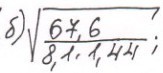 б) √(67,6 / 8,1·1,44);